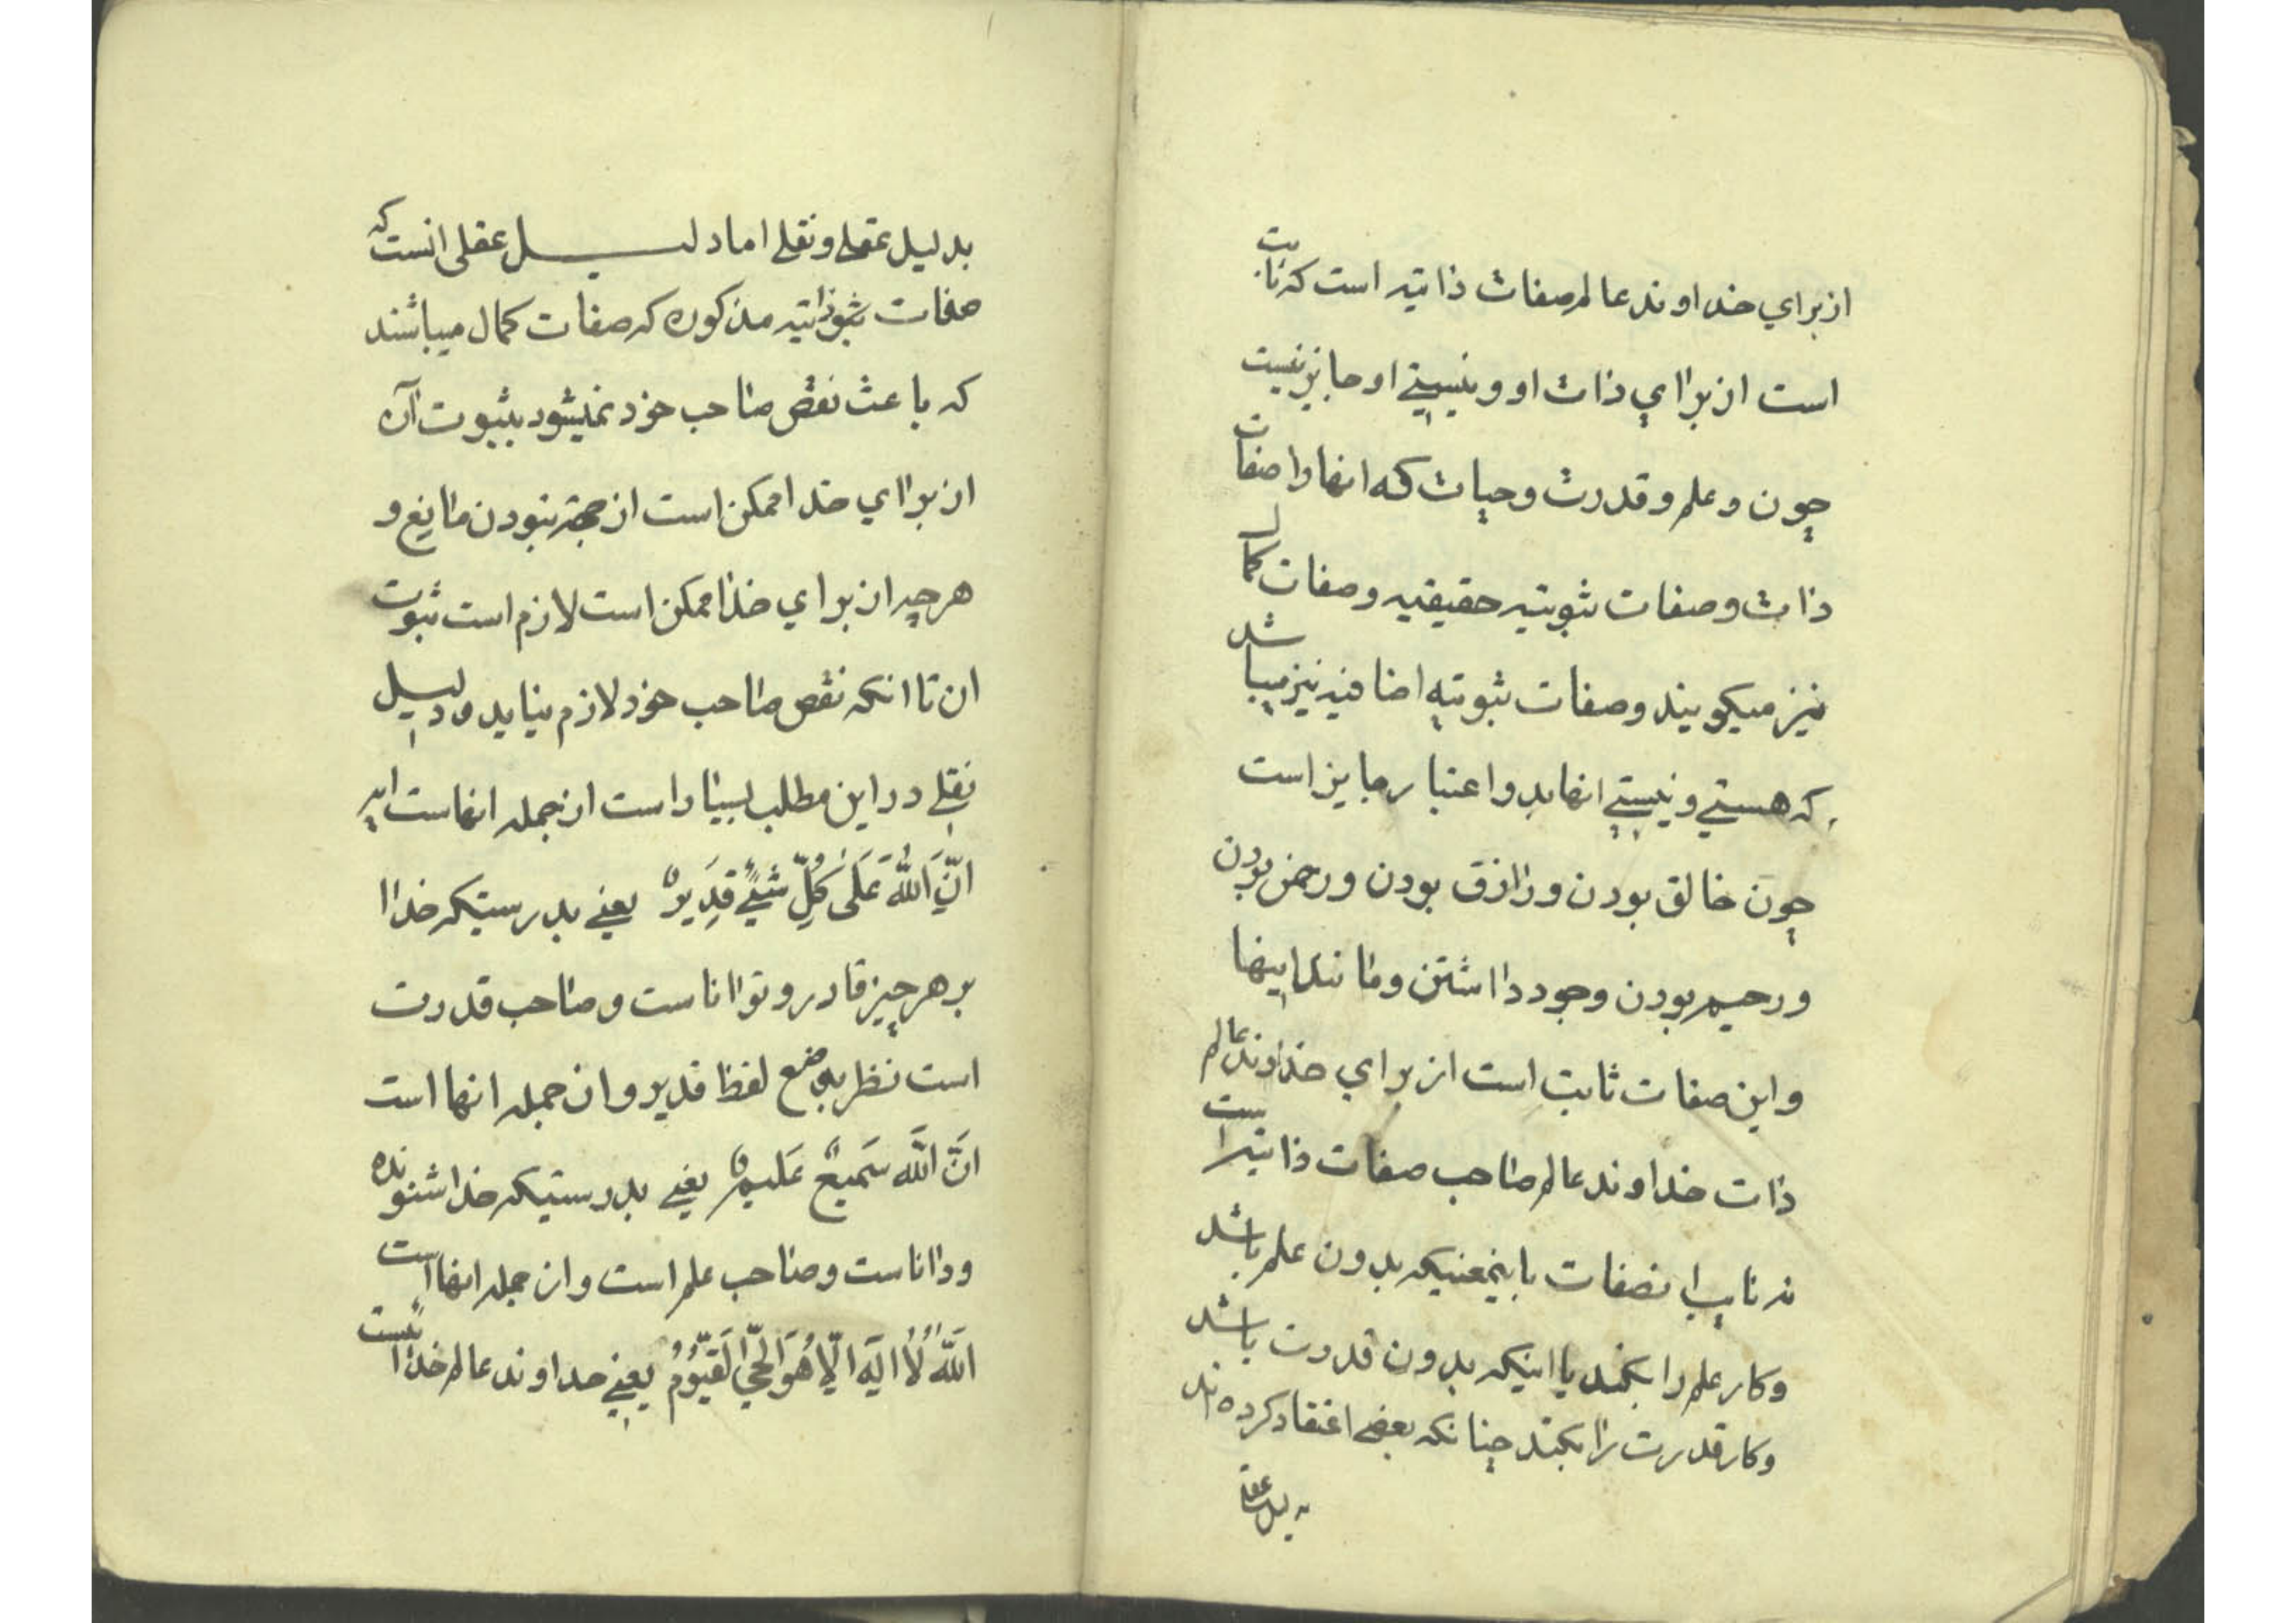 از براي خداوند عالم صفات ذاتیه است که ثابت
است از براي ذات او و نیستي او جایز نیست
چون و علم و قدرت و حیات که انها را صفات
ذات و صفات ثبوتیه حقیقیه و صفات کمال
نیز میکویند و صفات ثبوتیه اضافیه نیز میباشد
که هستي و نیستي انها بدو اعتبار جایز است
چون خالق بودن و رازق بودن و رحمن بودن
و رحیم بودن وجود داشتن و مانند اینها
و این صفات ثابت است از براي خداوند عالم
ذات خداوند عالم صاحب صفات ذاتیه است
نه نایب انصفات باینمعنیکه بدون علم باشد
و کار علم را بکند یا اینکه بدون قدرت باشد
و کار قدرت را بکند چنانکه بعضي اعتقاد کرده اند
بدلیل عقلي
بدلیل عقلے و نقلے اما دلیل عقلی انست که
صفات ثبوتیه مذکوره که صفات کمال میباشند
که باعث نقص صاحب خود نمیشود بثبوت آن
از براي خدا ممکن است از جهة نبودن مانع و
هرچه از براي خدا ممکن است لازم است ثبوت
ان تا انکه نقص صاحب خود لازم نیاید و دلیل
نقلے در این مطلب بسیار است از جمله انهاست ایه
اِنَّ اَللّٰهَ عَلَی کُلِّ شَیْءٍ قَدِیرٌ یعنے بدرستیکه خدا
بر هر چیز قادر و توانا است و صاحب قدرت
است نظر بوضع لفظ قدیر و از جمله انها است
اِنَّ اَللّٰهَ سَمیعٌ عَلیمٌ یعنے بدرستیکه خدا شنونده
و دانا ست و صاحب علم است و از جمله انها است
اَللّٰهُ لاٰ اِلٰهَ اِلّا هُوَ الْحَيُّ الْقَیّوُمُ یعنے خداوند عالم خدائیست